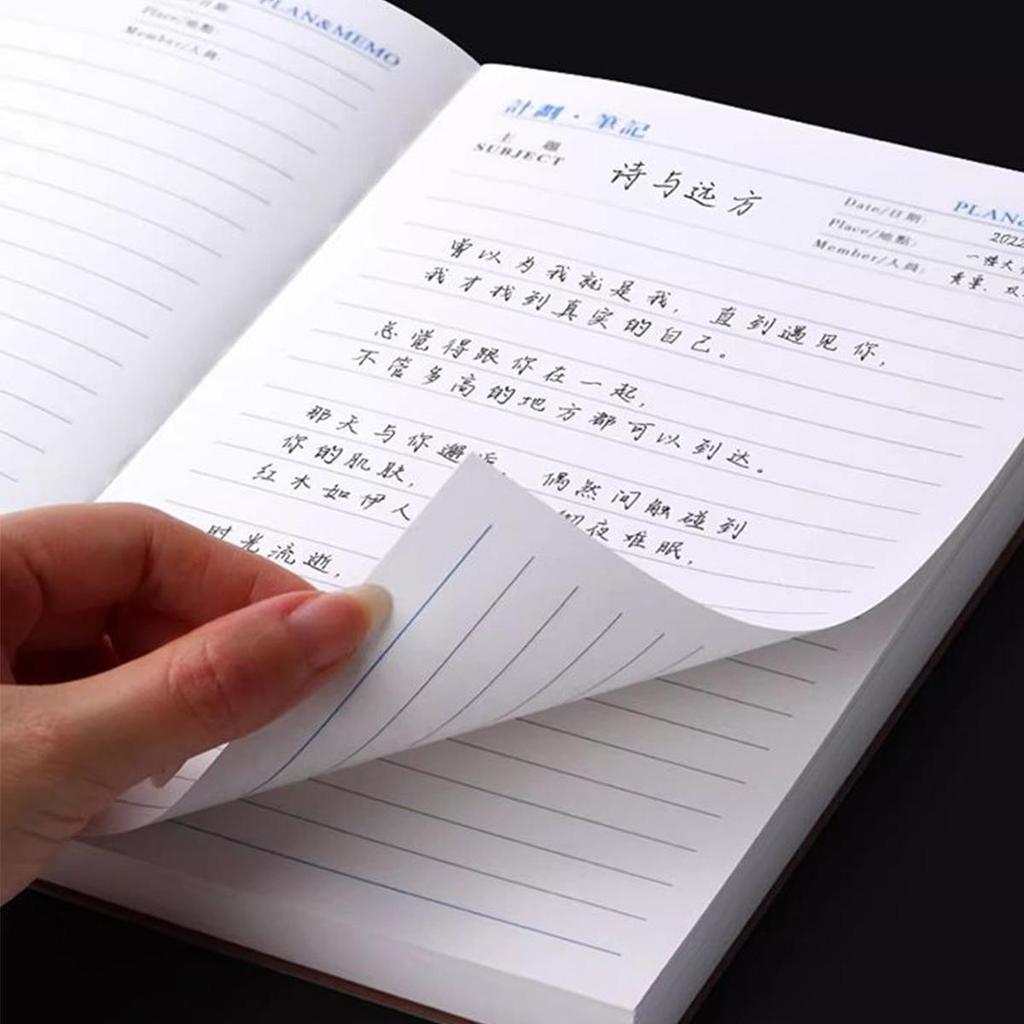 日期:
Place/地點:
Member/人員
PLAN&MEMO
計劃·筆記
主 題
SUBJECT
诗与远方
PLAN&
Date/日期: 2022
Place/地點: 一楼大
Member/人員:
曾以为我就是我, 直到遇见你,
我才找到真实的自己。
总觉得跟你在一起,
不管多高的地方都可以到达。
那天与你邂逅, 偶然间触碰到
你的肌肤,
红木如伊人 彻夜难眠,
时光流逝,